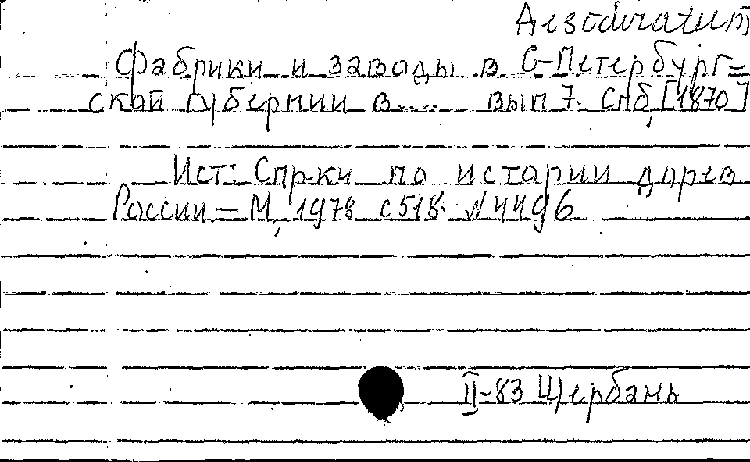 Desideratum
Фабрики и заводы в С-Петербург=
ской губернии в.... вып 7. Спб, [1870]
Ист: Спр-ки по истории дорев
России – М, 1978 с 518. N 4496
II-83 Щербань